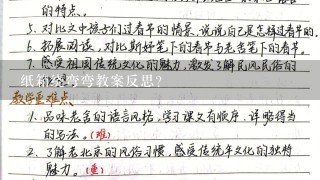 的特点。
5. 对比文中孩子们过春节的情景,说说自己是怎样过春节的.
6. 拓展阅读,对比斯好笔下的春节与老舍笔下的春节。
7. 感受祖国传统文化的魅力,激发了解民风民俗的
纸箱绕弯弯教案反思?
教学重难点、
1. 品味老舍的语言风格,学习课文有顺序、详略得当
的写法。(难)
2. 了解老北京的风俗习惯,感受传统年文化的独特
魅力。(重)